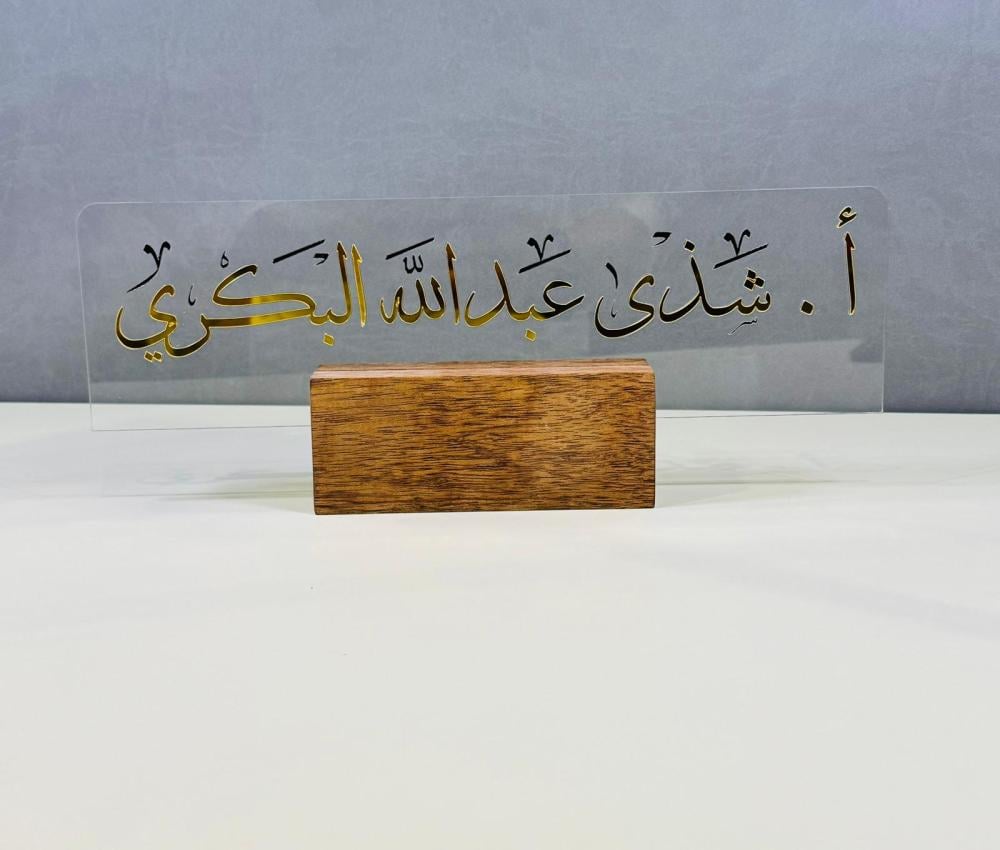 أ . شذى عبدالله البكري